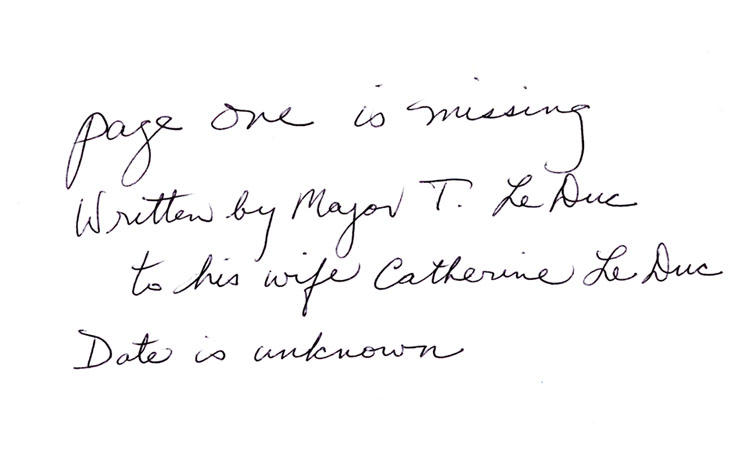 page one is missing
Written by Major T. Le Duc
to his wife Catherine Le Duc
Date is unknown